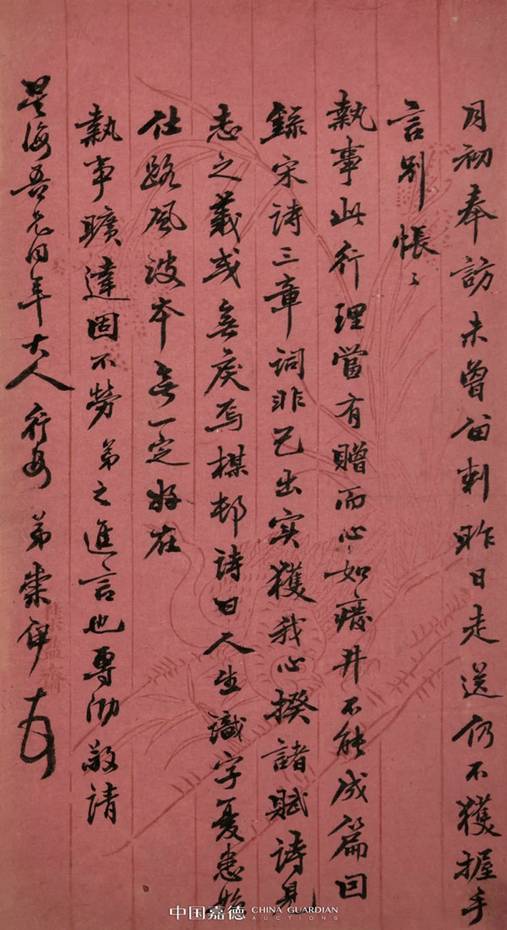 月初奉訪未曾留刺昨日走送仍不獲握手
言別悵〻
執事此行理當有贈而心如廢井不能成篇因
錄宋詩三章詞非己出实獲我心揆諸賦詩見
志之義或無戾焉楳邨詩曰人生識字憂患始
仕路風波本無一定好在
執事曠達固不勞弟之進言也專泐敬請
星海吾兄同年大人行安弟崇伊
中国嘉德 CHINA GUARDIAN
AUCTIONS